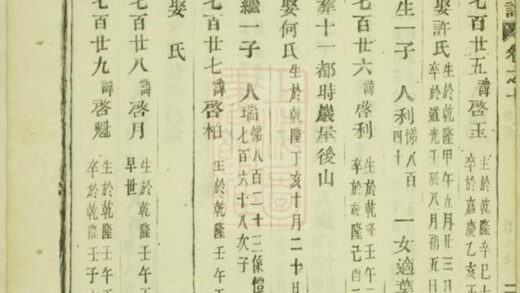 譜 卷之十
七百廿五 諱啓玉 生於乾隆辛巳七
卒於嘉慶乙亥正
娶許氏 生於乾隆甲午五月廿三日
卒於道光壬辰八月初五日
生一子 人利 係八百
四十 一女適葉
七百廿六 諱啓利 生於乾隆壬午
卒於乾隆己酉二
葬十一都時嚴垕後山
娶何氏 生於乾隆丁亥十月二十日
繼一子 人瑞 係八百二十三係僿
七百六十八次子
七百廿七 諱啓柏 生於乾隆壬午
娶 氏
七百廿八 諱啓月 生於乾隆壬午五
早世
七百廿九 諱啓魁 生於乾隆壬午
卒於乾隆壬子